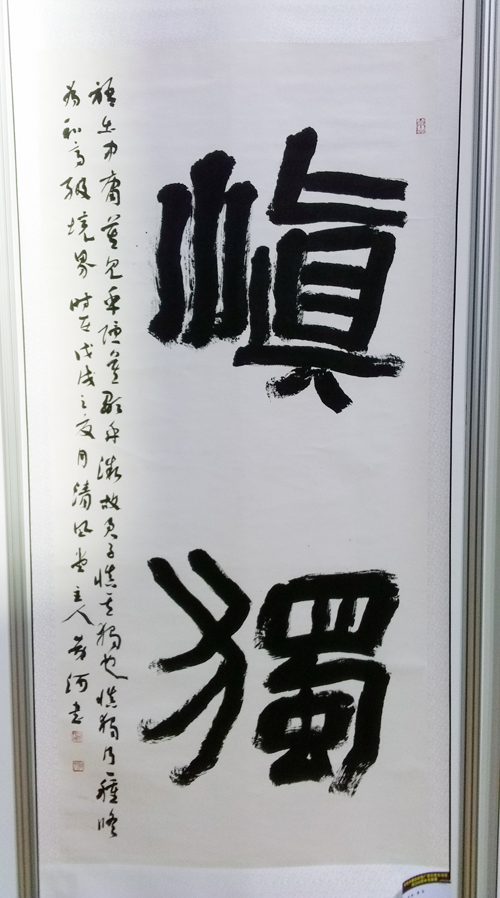 愼獨
語出中庸莫見乎隱莫顯乎微故君子慎其獨也慎獨乃一種修
為和高級境界 时在戊戌之夏月清風堂主人 河書